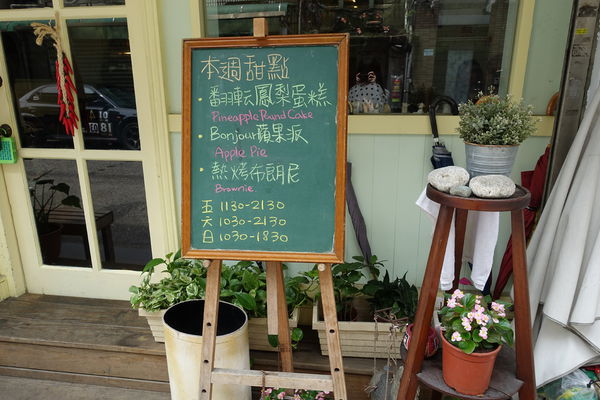 本週甜點
·翻轉鳳梨蛋糕
Pineapple Pound Cake
·Bonjour蘋果派
Apple Pie
·熱烤布朗尼
Brownie.
五 1130-2130
六 1030-2130
日 1030-1830